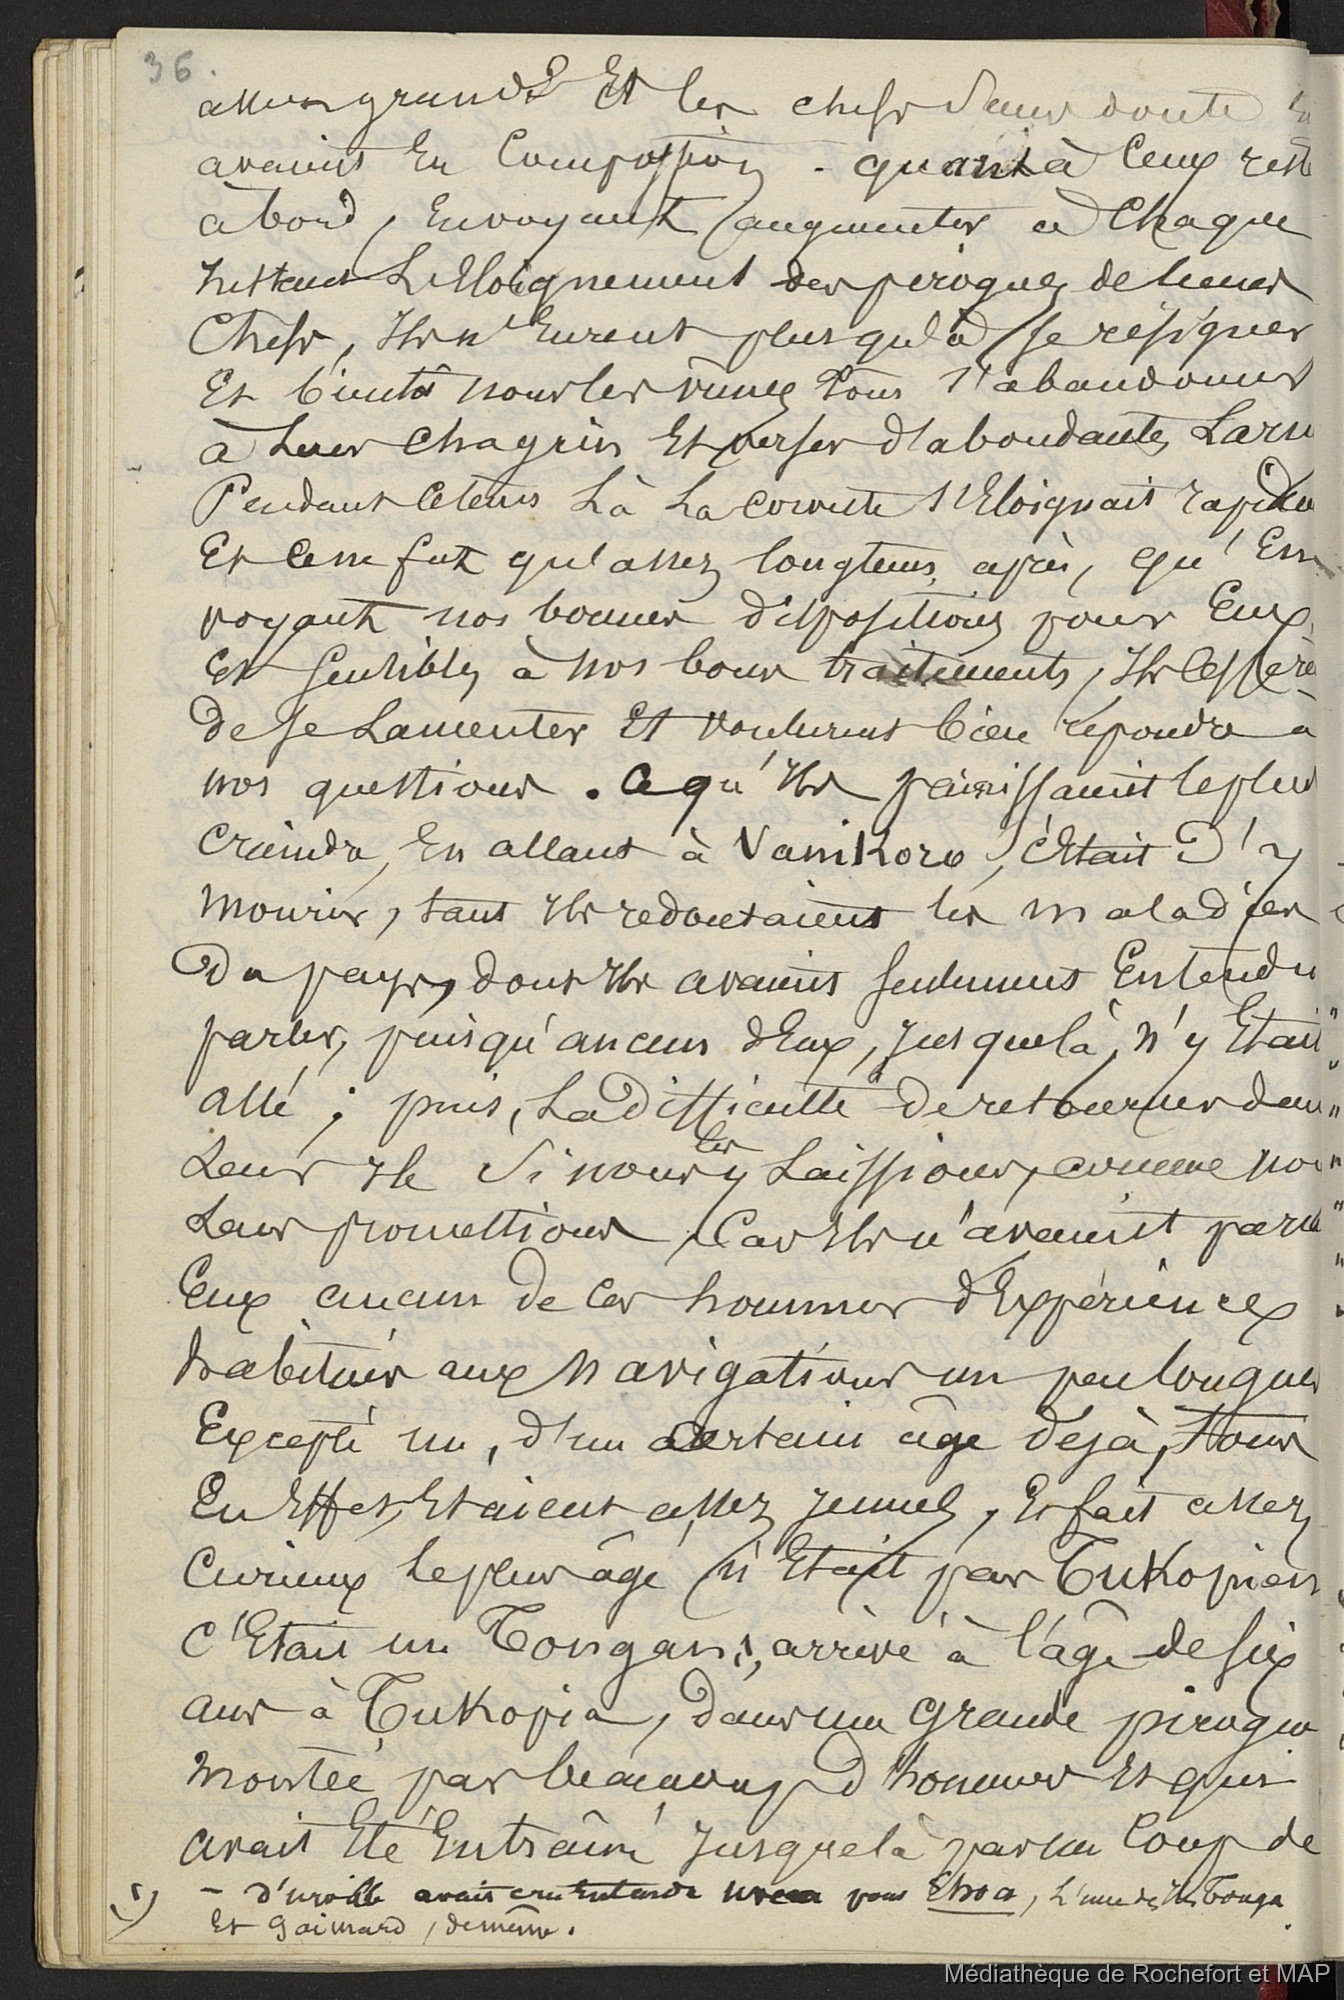 36.
assez grande Et les chefs sans doute
avaient En Compassion. quant à Ceux rest
à bord, En voyant augmenter à Chaque
instant L'Eloignement des pirogues de leurs
Chefs, Ils n'Eurent plus qu'à se résigner
Et bientôt nous les vimes tous s'abandonner
à Leur chagrin Et verser d'abondantes Larm
Pendant Cetems Là La corvette s'Eloignait rapidem
Et Cene fut qu'assez longtems après, qu'En
voyant nos bonnes dispositions pour Eux,
Et sensibles à nos bons traitements, Ils Cessère
de se Lamenter Et voulurent bien répondre à
nos questions. Ce qu'Ils paraissaient le plus
Craindre, En allant à Vanikoro, c'Etait D'y
Mourir, tant Ils redoutaient les maladies
Du pays, dont Ils avaient seulement Entendu
parler, puisqu'aucun d'Eux, jusque là, n'y Etait
allé ; puis, La difficulté de retourner dans
Leur Ile Si nous les y Laissions, comme nou
Leur promettions, Car Ils n'avaient parmi
Eux aucun de Ces hommes d'Expérience
habitués aux Navigations un peu longues
Excepté un, d'un certain âge déjà, tous
En Effet, Etaient assez jeunes, Et fait assez
Curieux le plus âgé n'Etait pas Tukopien
C'Etait un Tongan, arrivé à l'âge de six
ans à Tukopia, dans une grande pirogue
Montée par beaucoup d'hommes Et qui
avait Eté Entraîné jusque là par un Coup de
(1) - d'urville avait cru Entendre pour Ehoa, L'une des Iles Tonga
Et Gaimard, de même.
Médiathèque de Rochefort et MAP